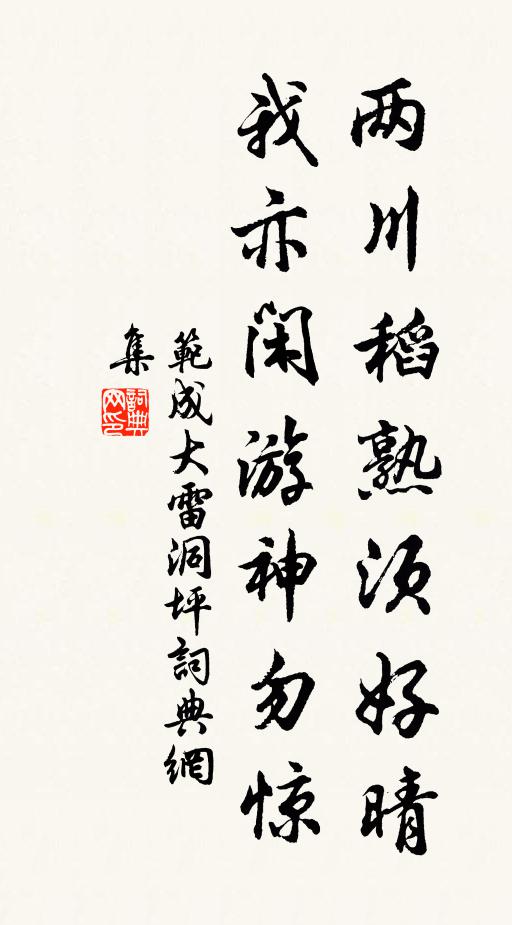 两川稻熟须好晴
我亦闲游神勿惊
範成大雷洞坪詞典網
集
詞典网印